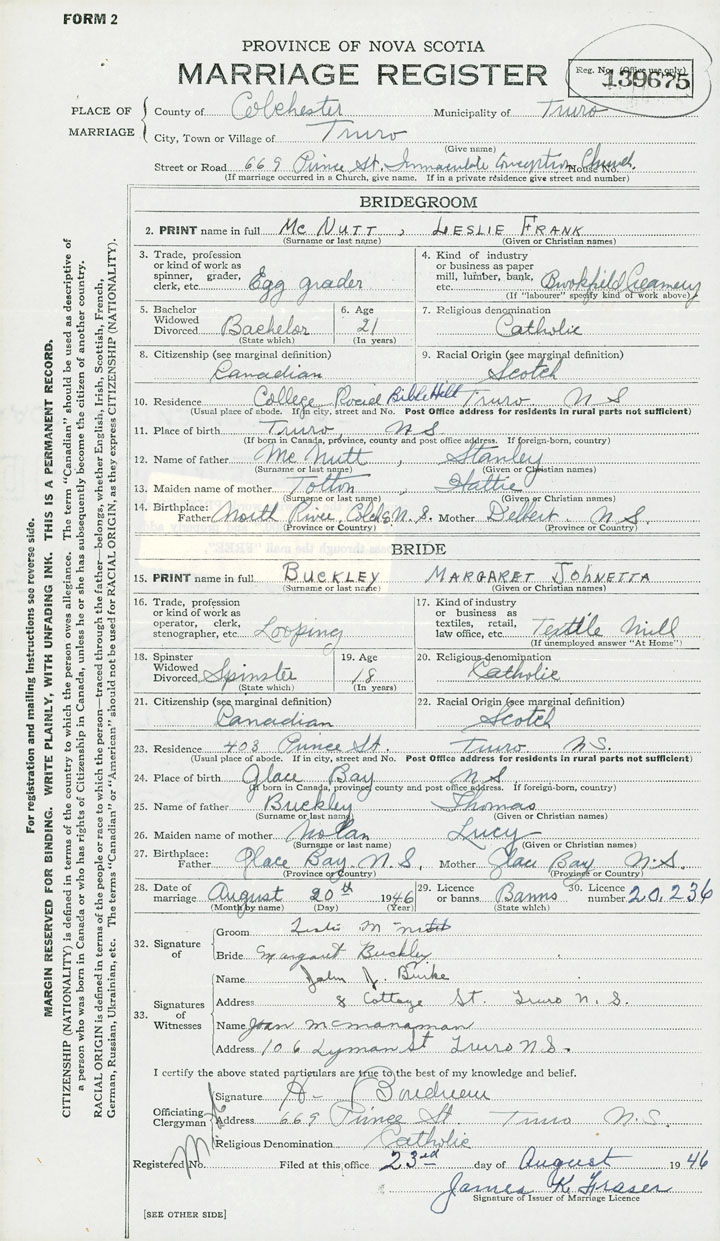 FORM 2
PROVINCE OF NOVA SCOTIA
MARRIAGE REGISTER
Reg. No. (Office use only)
139675
PLACE OF MARRIAGE
County of Colchester Municipality of Truro
City, Town or Village of Truro
(Give name)
Street or Road 669 Prince St. Immaculate Conception Church. House No.
(If marriage occurred in a Church, give name. If in a private résidence give street and number)
BRIDEGROOM
2. PRINT name in full MC NUTT , LESLIE FRANK
(Surname or last name) (Given or Christian names)
3. Trade, profession or kind of work as spinner, grader, clerk, etc. Egg grader
4. Kind of industry or business as paper mill, lumber, bank, etc. Brookfield Creamery
(If "labourer" specify kind of work above)
5. Bachelor Widowed Divorced Bachelor
(State which)
6. Age 21
(In years)
7. Religious denomination Catholic
8. Citizenship (see marginal definition) Canadian
9. Racial Origin (see marginal definition) Scotch
10. Residence College Road Bible Hill Truro N S
(Usual place of abode. If in city, street and No. Post Office address for residents in rural parts not sufficient)
11. Place of birth Truro N S
(If born in Canada, province, county and post office address. If foreign-born, country)
12. Name of father Mc Nutt , Stanley
(Surname or last name) (Given or Christian names)
13. Maiden name of mother Totton , Hattie
(Surname or last name) (Given or Christian names)
14. Birthplace: Father North River, Colch. N.S. Mother Debert. N S.
(Province or Country) (Province or Country)
BRIDE
15. PRINT name in full BUCKLEY MARGARET JOHNETTA
(Surname or last name) (Given or Christian names)
16. Trade, profession or kind of work as operator, clerk, stenographer, etc. Looping
17. Kind of industry or business as textiles, retail, law office, etc. Textile Mill
(If unemployed answer "At Home")
18. Spinster Widowed Divorced Spinster
(State which)
19. Age 18
(In years)
20. Religious denomination Catholic
21. Citizenship (see marginal definition) Canadian
22. Racial Origin (see marginal definition) Scotch
23. Residence 403 Prince St. Truro N.S.
(Usual place of abode. If in city, street and No. Post Office address for residents in rural parts not sufficient)
24. Place of birth Glace Bay N S
(If born in Canada, province, county and post office address. If foreign-born, country)
25. Name of father Buckley Thomas
(Surname or last name) (Given or Christian names)
26. Maiden name of mother Nolan Lucy
(Surname or last name) (Given or Christian names)
27. Birthplace: Father Glace Bay. N.S. Mother Glace Bay N.S.
(Province or Country) (Province or Country)
28. Date of marriage August 20th 1946
(Month by name) (Day) (Year)
29. Licence or banns Banns
(State which)
30. Licence number 20,236
32. Signature of
Groom Leslie McNutt
Bride Margaret Buckley
33. Signatures of Witnesses
Name John J. Burke
Address 8 Cottage St. Truro N. S.
Name Joan McManaman
Address 106 Lyman St Truro N.S.
I certify the above stated particulars are true to the best of my knowledge and belief.
Officiating Clergyman
Signature H- Boudreau
Address 669 Prince St Truro N.S.
Religious Denomination Catholic
Registered No. Filed at this office 23rd day of August 1946
James K Fraser
Signature of Issuer of Marriage Licence
[SEE OTHER SIDE]
For registration and mailing instructions see reverse side.
MARGIN RESERVED FOR BINDING. WRITE PLAINLY, WITH UNFADING INK. THIS IS A PERMANENT RECORD.
CITIZENSHIP (NATIONALITY) is defined in terms of the country to which the person owes allegiance. The term "Canadian" should be used as descriptive of
a person who was born in Canada or who has rights of Citizenship in Canada, unless he or she has subsequently become the citizen of another country.
RACIAL ORIGIN is defined in terms of the people or race to which the person—traced through the father—belongs, whether English, Irish, Scottish, French,
German, Russian, Ukrainian, etc. The terms "Canadian" or "American" should not be used for RACIAL ORIGIN, as they express CITIZENSHIP (NATIONALITY).